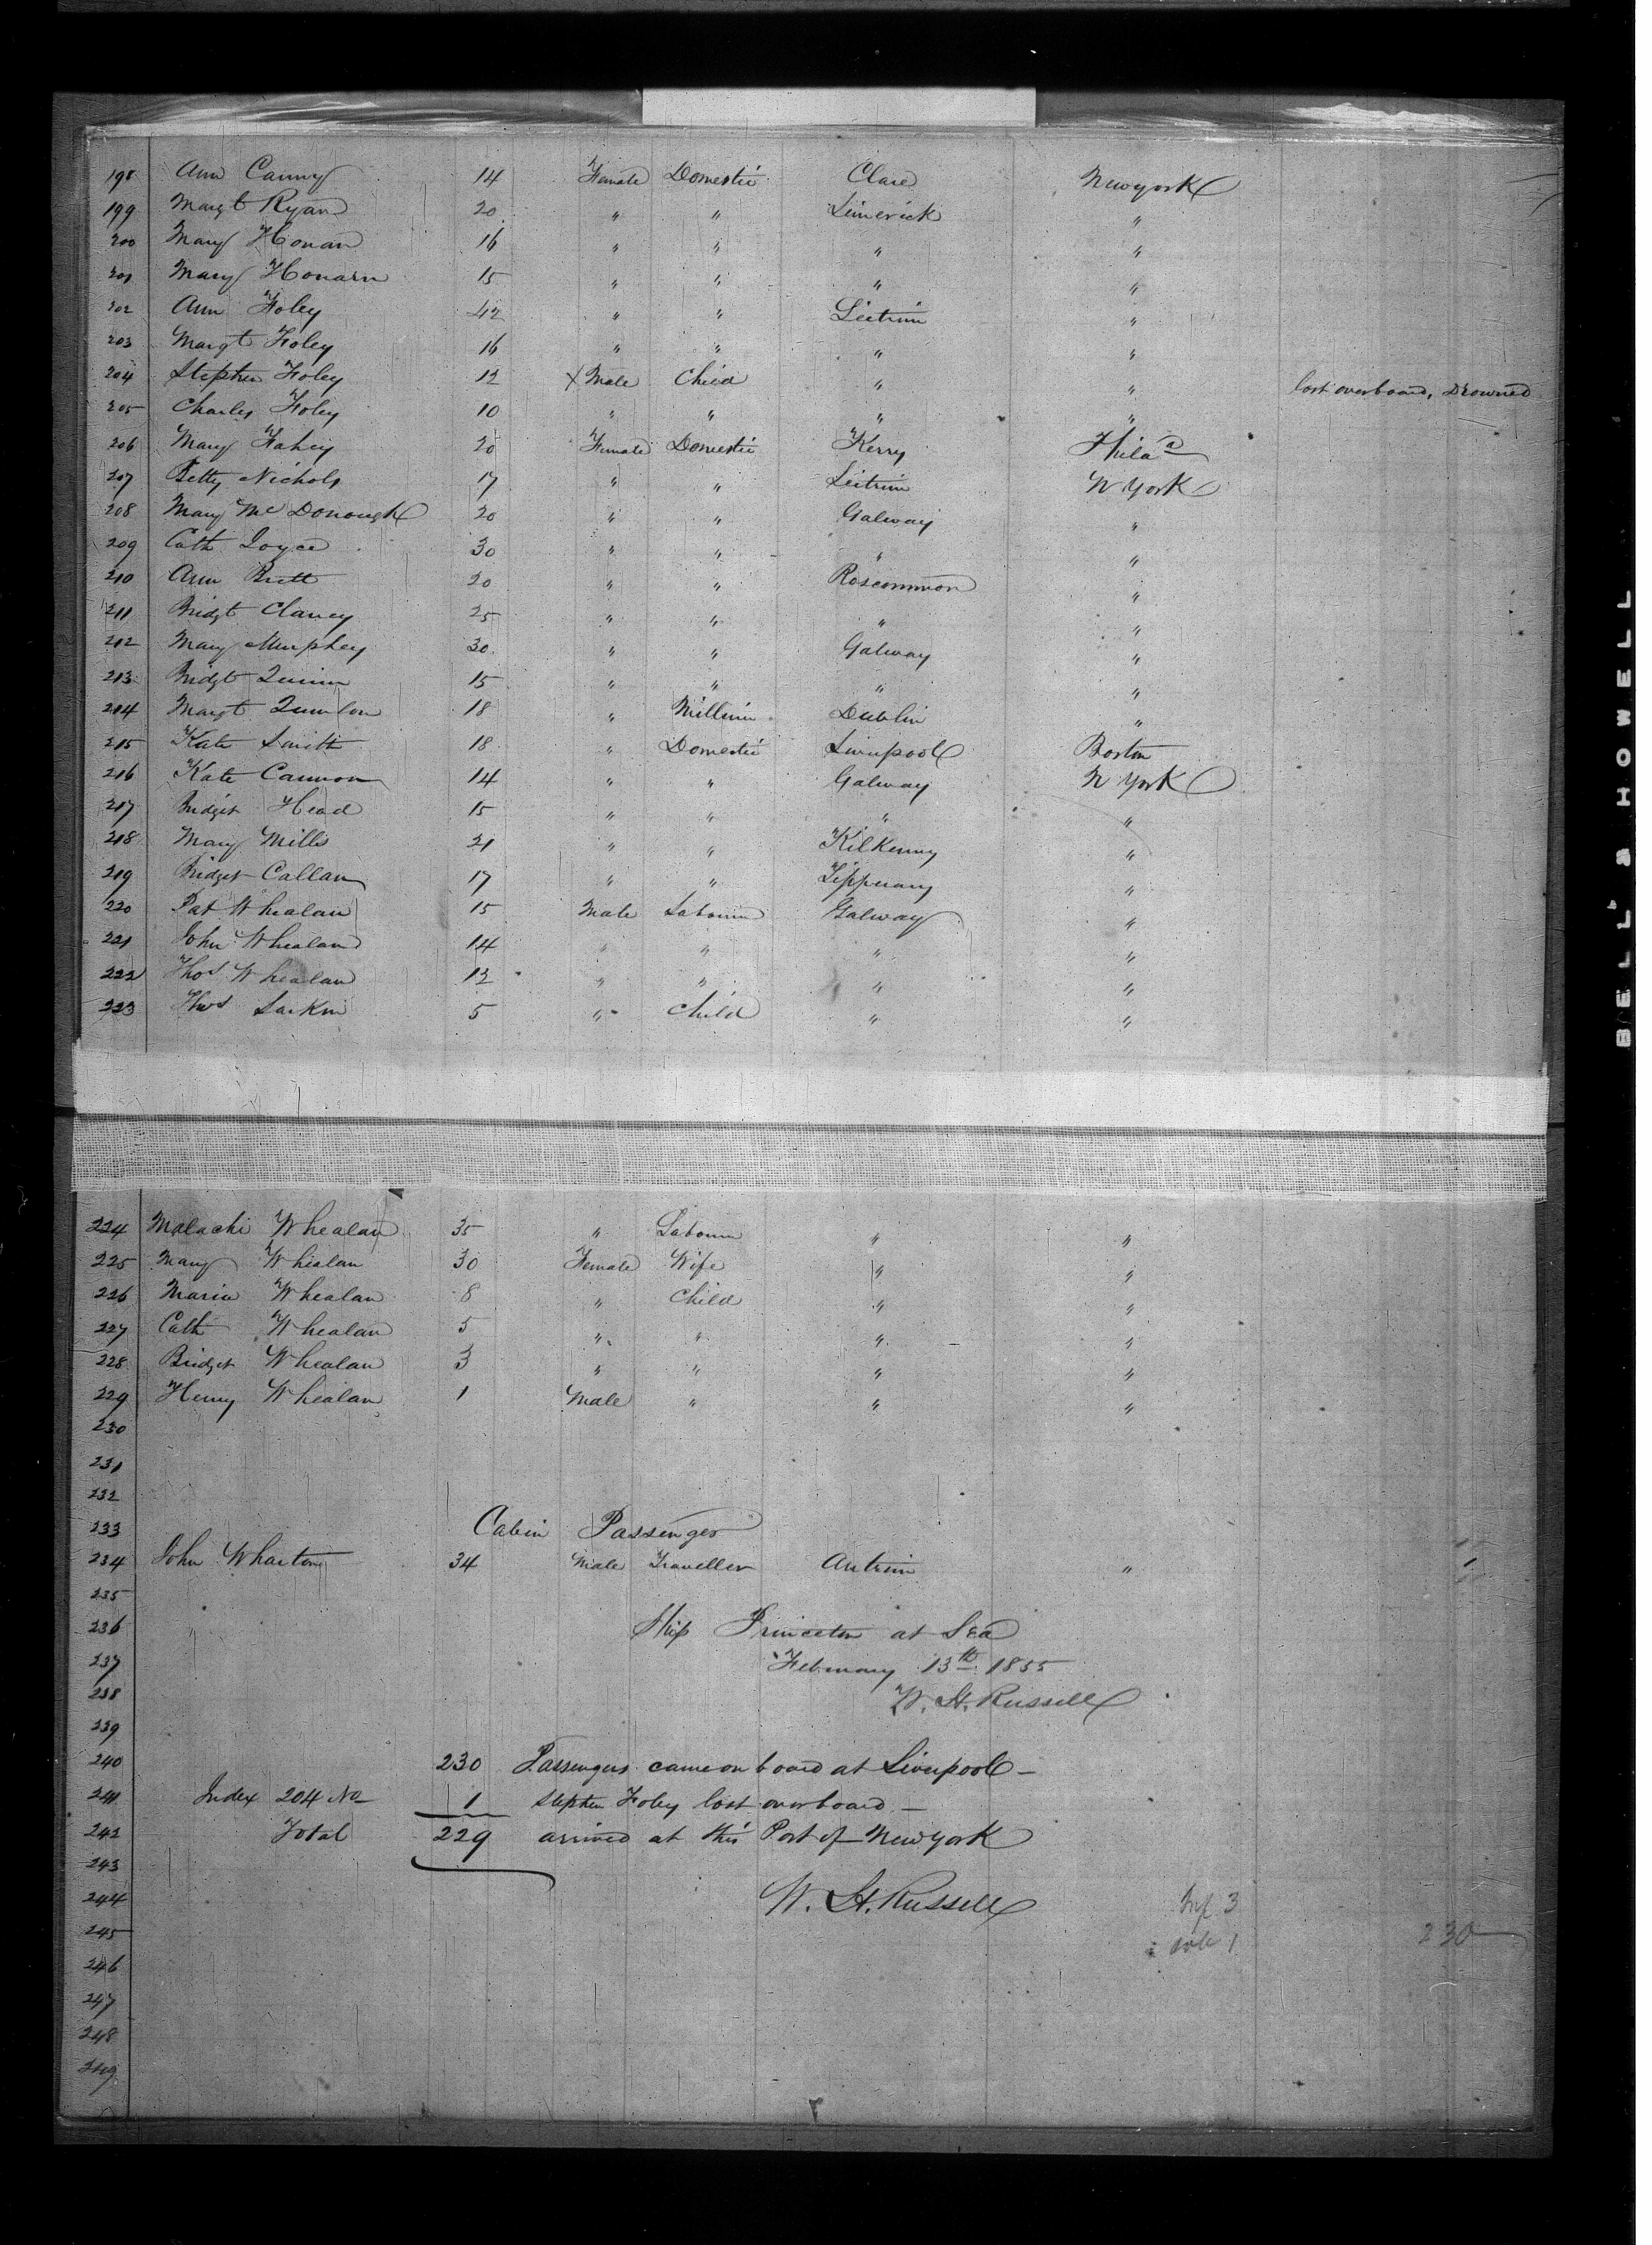 198 Ann Canny 14 Female Domestic Clare Newyork
199 Margt Ryan 20 " " Limerick "
200 Mary Honan 16 " " " "
201 Mary Honarn 15 " " " "
202 Ann Foley 42 " " Leitrim "
203 Margt Foley 16 " " " "
204 Stephen Foley 12 X Male Child " " lost overboard, Drowned
205 Charles Foley 10 " " " "
206 Mary Fahey 20 Female Domestic Kerry Phila
207 Betty Nichols 17 " " Leitrim N York
208 Mary Mc Donough 20 " " Galway "
209 Cath Joyce 30 " " " "
210 Ann Brett 20 " " Roscommon "
211 Bridgt Clancy 25 " " " "
212 Mary Murphey 30 " " Galway "
213 Bridgt Quinn 15 " " " "
214 Margt Quinlon 18 " Millinir Dublin "
215 Kate Smith 18 " Domestic Liverpool Boston
216 Kate Cannon 14 " " Galway N York
217 Bridget Head 15 " " " "
218 Mary Mills 21 " " Kilkenny "
219 Bridget Callan 17 " " Tipperary "
220 Pat Whealan 15 Male Labourer Galway "
221 John Whealan 14 " " " "
222 Thos Whealan 12 " " " "
223 Thos Larkin 5 " Child " "
224 Malachi Whealan 35 " Labourer " "
225 Mary Whealan 30 Female Wife " "
226 Maria Whealan 8 " Child " "
227 Cath Whealan 5 " " " "
228 Bridget Whealan 3 " " " "
229 Henry Whealan 1 Male " " "
230
231
232
233 Cabin Passenger
234 John Wharton 34 Male Traveller Antrim " 1
235
236 Ship Princeton at Sea
237 February 13th 1855
238 W. H. Russell
239
240 230 Passengers came on board at Liverpool –
241 Index 204 No 1 Stephen Foley lost overboard –
242 Total 229 arrived at this Port of Newyork
243
244 W. H. Russell Inf 3
245 1 230
246
247
248
249
BELL & HOWELL